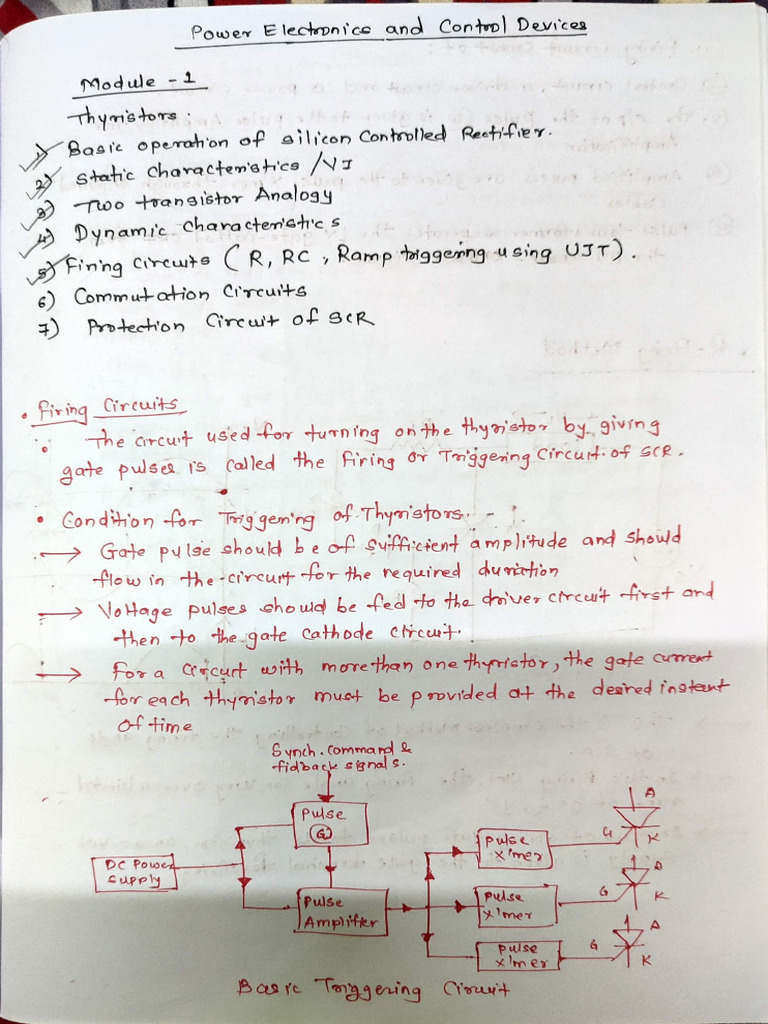 Power Electronics and Control Devices
Module - 1
Thyristors:
1) Basic operation of silicon Controlled Rectifier.
2) Static Characteristics / VI
3) Two transistor Analogy
4) Dynamic Characteristics
5) Firing Circuits ( R, RC , Ramp triggering using UJT ) .
6) Commutation Circuits
7) Protection Circuit of SCR
• Firing Circuits
The circuit used for turning on the thyristor by giving
gate pulses is called the firing or Triggering Circuit of SCR.
• Condition for Triggering of Thyristors. -
→ Gate pulse should be of sufficient amplitude and should
flow in the circuit for the required duration
→ Voltage pulses should be fed to the driver circuit first and
then to the gate cathode circuit.
→ For a circuit with more than one thyristor, the gate current
for each thyristor must be provided at the desired instant
of time
Synch. command &
fidback signals.
Pulse
G
DC Power
Supply
Pulse
Amplifier
pulse
x'mer
G
A
K
pulse
x'mer
G
A
K
pulse
x'mer
G
A
K
Basic Triggering Circuit